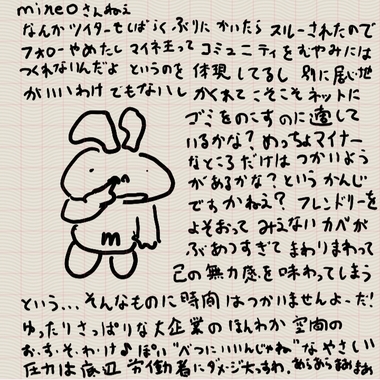 mineoさんねぇ
なんかツイターもしばらくぶりにかいたらスルーされたので
フォローやめたし マイネ王ってコミュニティをむやみには
つくれないんだよ というのを体現してるし 別に居心地
がいいわけでもないし かくれてこそこそネットに
ゴミをのこすのに適して
いるかな? めっちょマイナー
なところだけはつかいよう
があるかな? というかんじ
ですかねえ? フレンドリーを
よそおって みえないカベが
ぶあつすぎて まわりまわって
己の無力感を味わってしまう
という... そんなものに時間はつかいませんよーだ!
ゆったりさっぱりな大企業のほんわか空間の
お・す・そ・わ・け♪ぽい"べつにいいんじゃね"なやさしい
圧力は底辺労働者にダメージ大っすわ。あらあらまあまあ
m